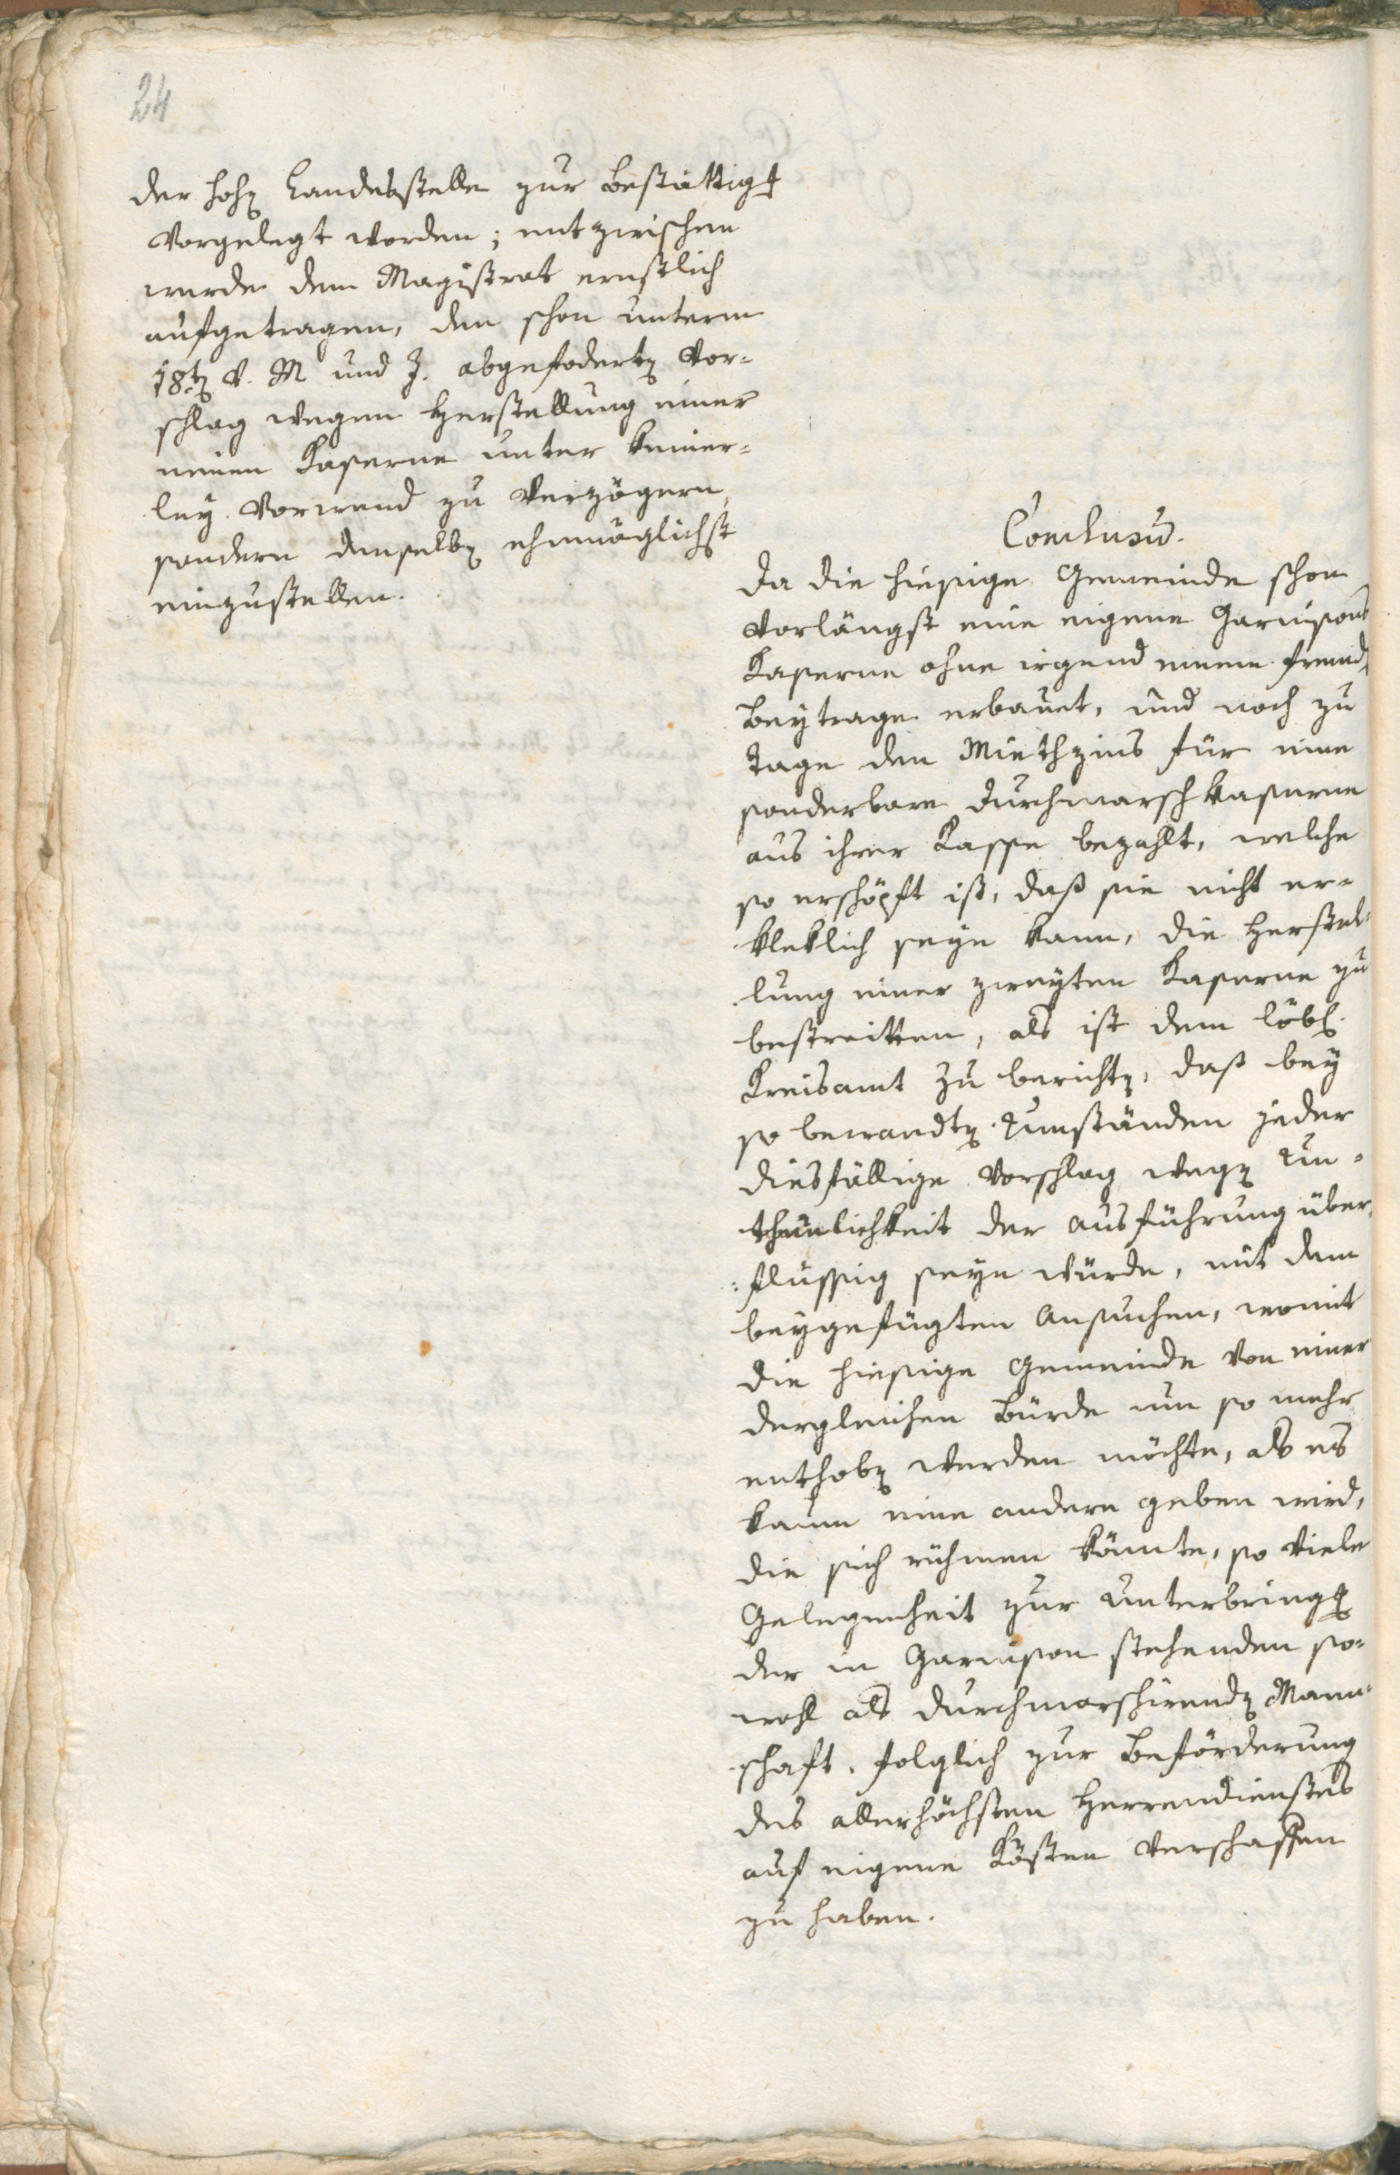 24
der hohen Landesstelle zur Bestättigung
vorgelegt worden; mit zwischen
wurde dem Magistrat ernstlich
aufgetragen, den schon unterm
18ten v. M und J. abgefoderten Vor-
schlag wegen Herstellung einer
neuen Kaserne unter keiner-
ley Vorwand zu verzögern,
sondern denselben ehemöglichst
einzustellen.
Conclusum.
Da die hiesige Gemeinde schon
vorlängst eine eigene Garnisons
Kaserne ohne irgend einem fremden
Beytrage erbauet, und noch zu
Tage den Miethzins für eine
sonderbare Durchmarschkaserne
aus ihrer Kasse bezahlt, welche
so erschöpft ist, daß sie nicht er-
kleklich seyn kann, die Herstel-
lung einer zweyten Kaserne zu
bestreitten, als ist dem löbl.
Kreisamt zu berichten, daß bey
so bewandten Umständen jeder
diesfällige Vorschlag wegen Un-
thunlichkeit der Ausführung über-
flüssig seyn würde, mit dem
beygefügten Ansuchen, womit
die hiesige Gemeinde von einer
dergleichen Bürde um so mehr
enthoben werden möchte, als es
kaum eine andere geben wird,
die sich rühmen könnte, so viele
Gelegenheit zur Unterbringung
der in Garnison stehenden so-
wohl als durchmarschirenden Mann-
schaft, folglich zur Beförderung
des allerhöchsten Herrendienstes
auf eigene Kösten verschaffen
zu haben.